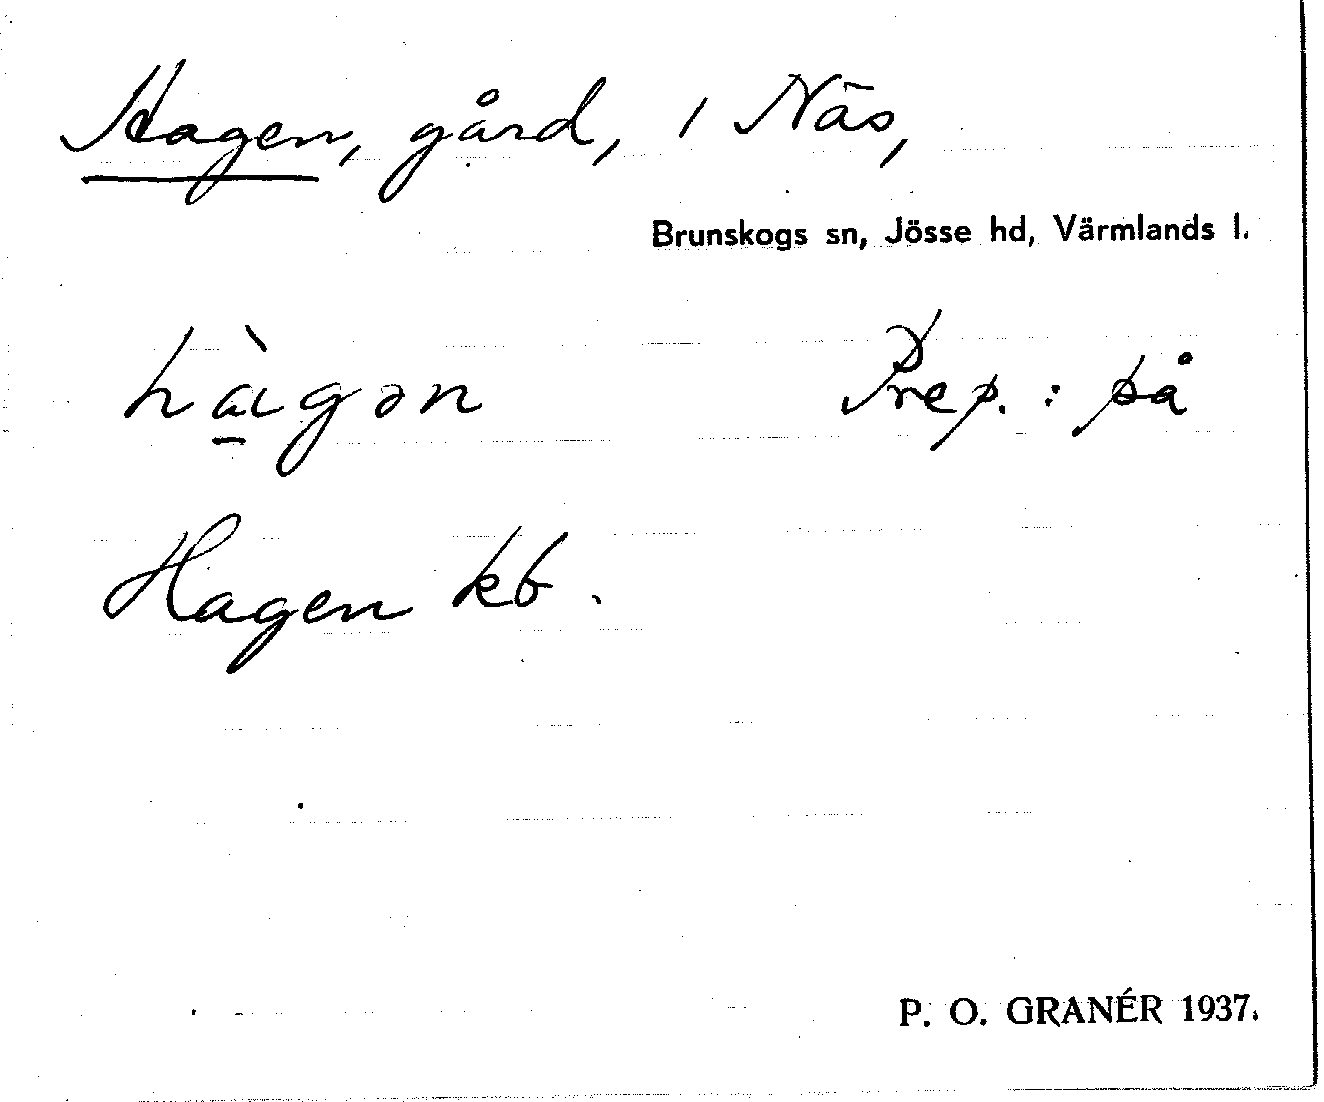 Hagen, gård, i Näs,
Brunskogs sn, Jösse hd, Värmlands l.
hà̱gən Prep.: på
Hagen kb.
P. O. GRANÉR 1937.